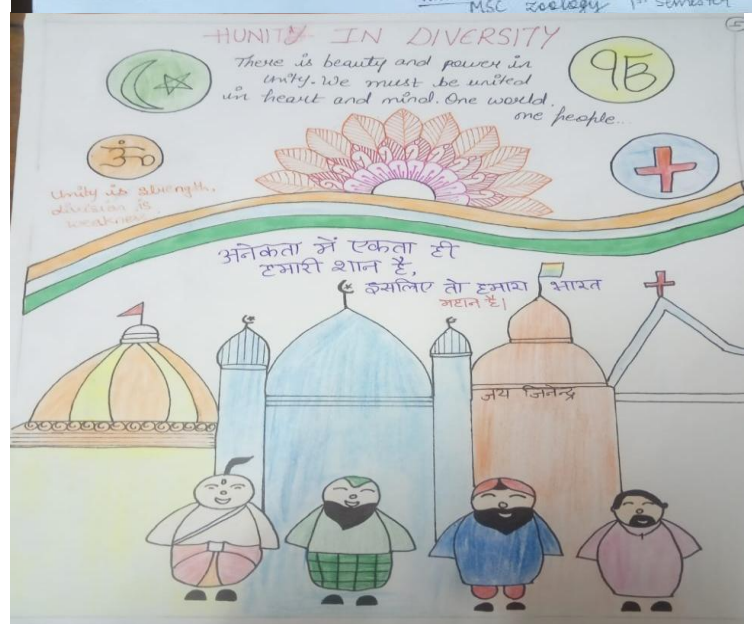 MSc Zoology Ist Semester
5
HUNITY IN DIVERSITY
There is beauty and power in
Unity. We must be united
in heart and mind. One world,
one people...
ੴ
ॐ
Unity is strength,
division is
weakness.
अनेकता में एकता ही
हमारी शान है,
इसलिए तो हमारा भारत
महान है।
जय जिनेन्द्र